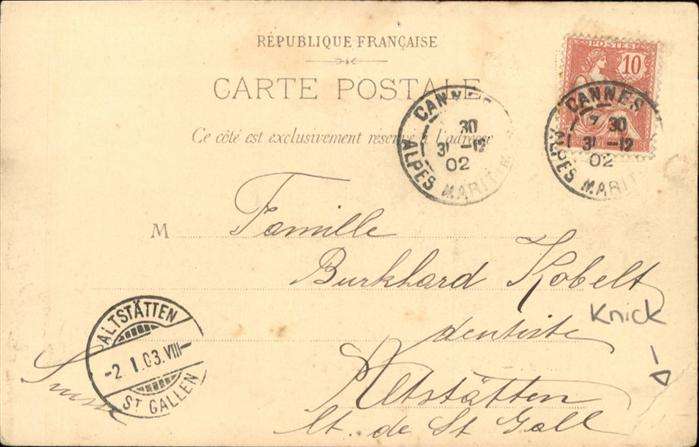 RÉPUBLIQUE FRANÇAISE
CARTE POSTALE
Ce côté est exclusivement réservé à l'adresse
POSTES
10
CANNES
7 30
31 -12
02
ALPES MARIT
CANNES
30
31 -12
02
ALPES MARITIM
M Famille
Burkhard Kobelt
dentiste
Altstätten
Ct. de St Gall
Suisse
Knick
ALTSTÄTTEN
-2 I.03.VIII-
ST GALLEN